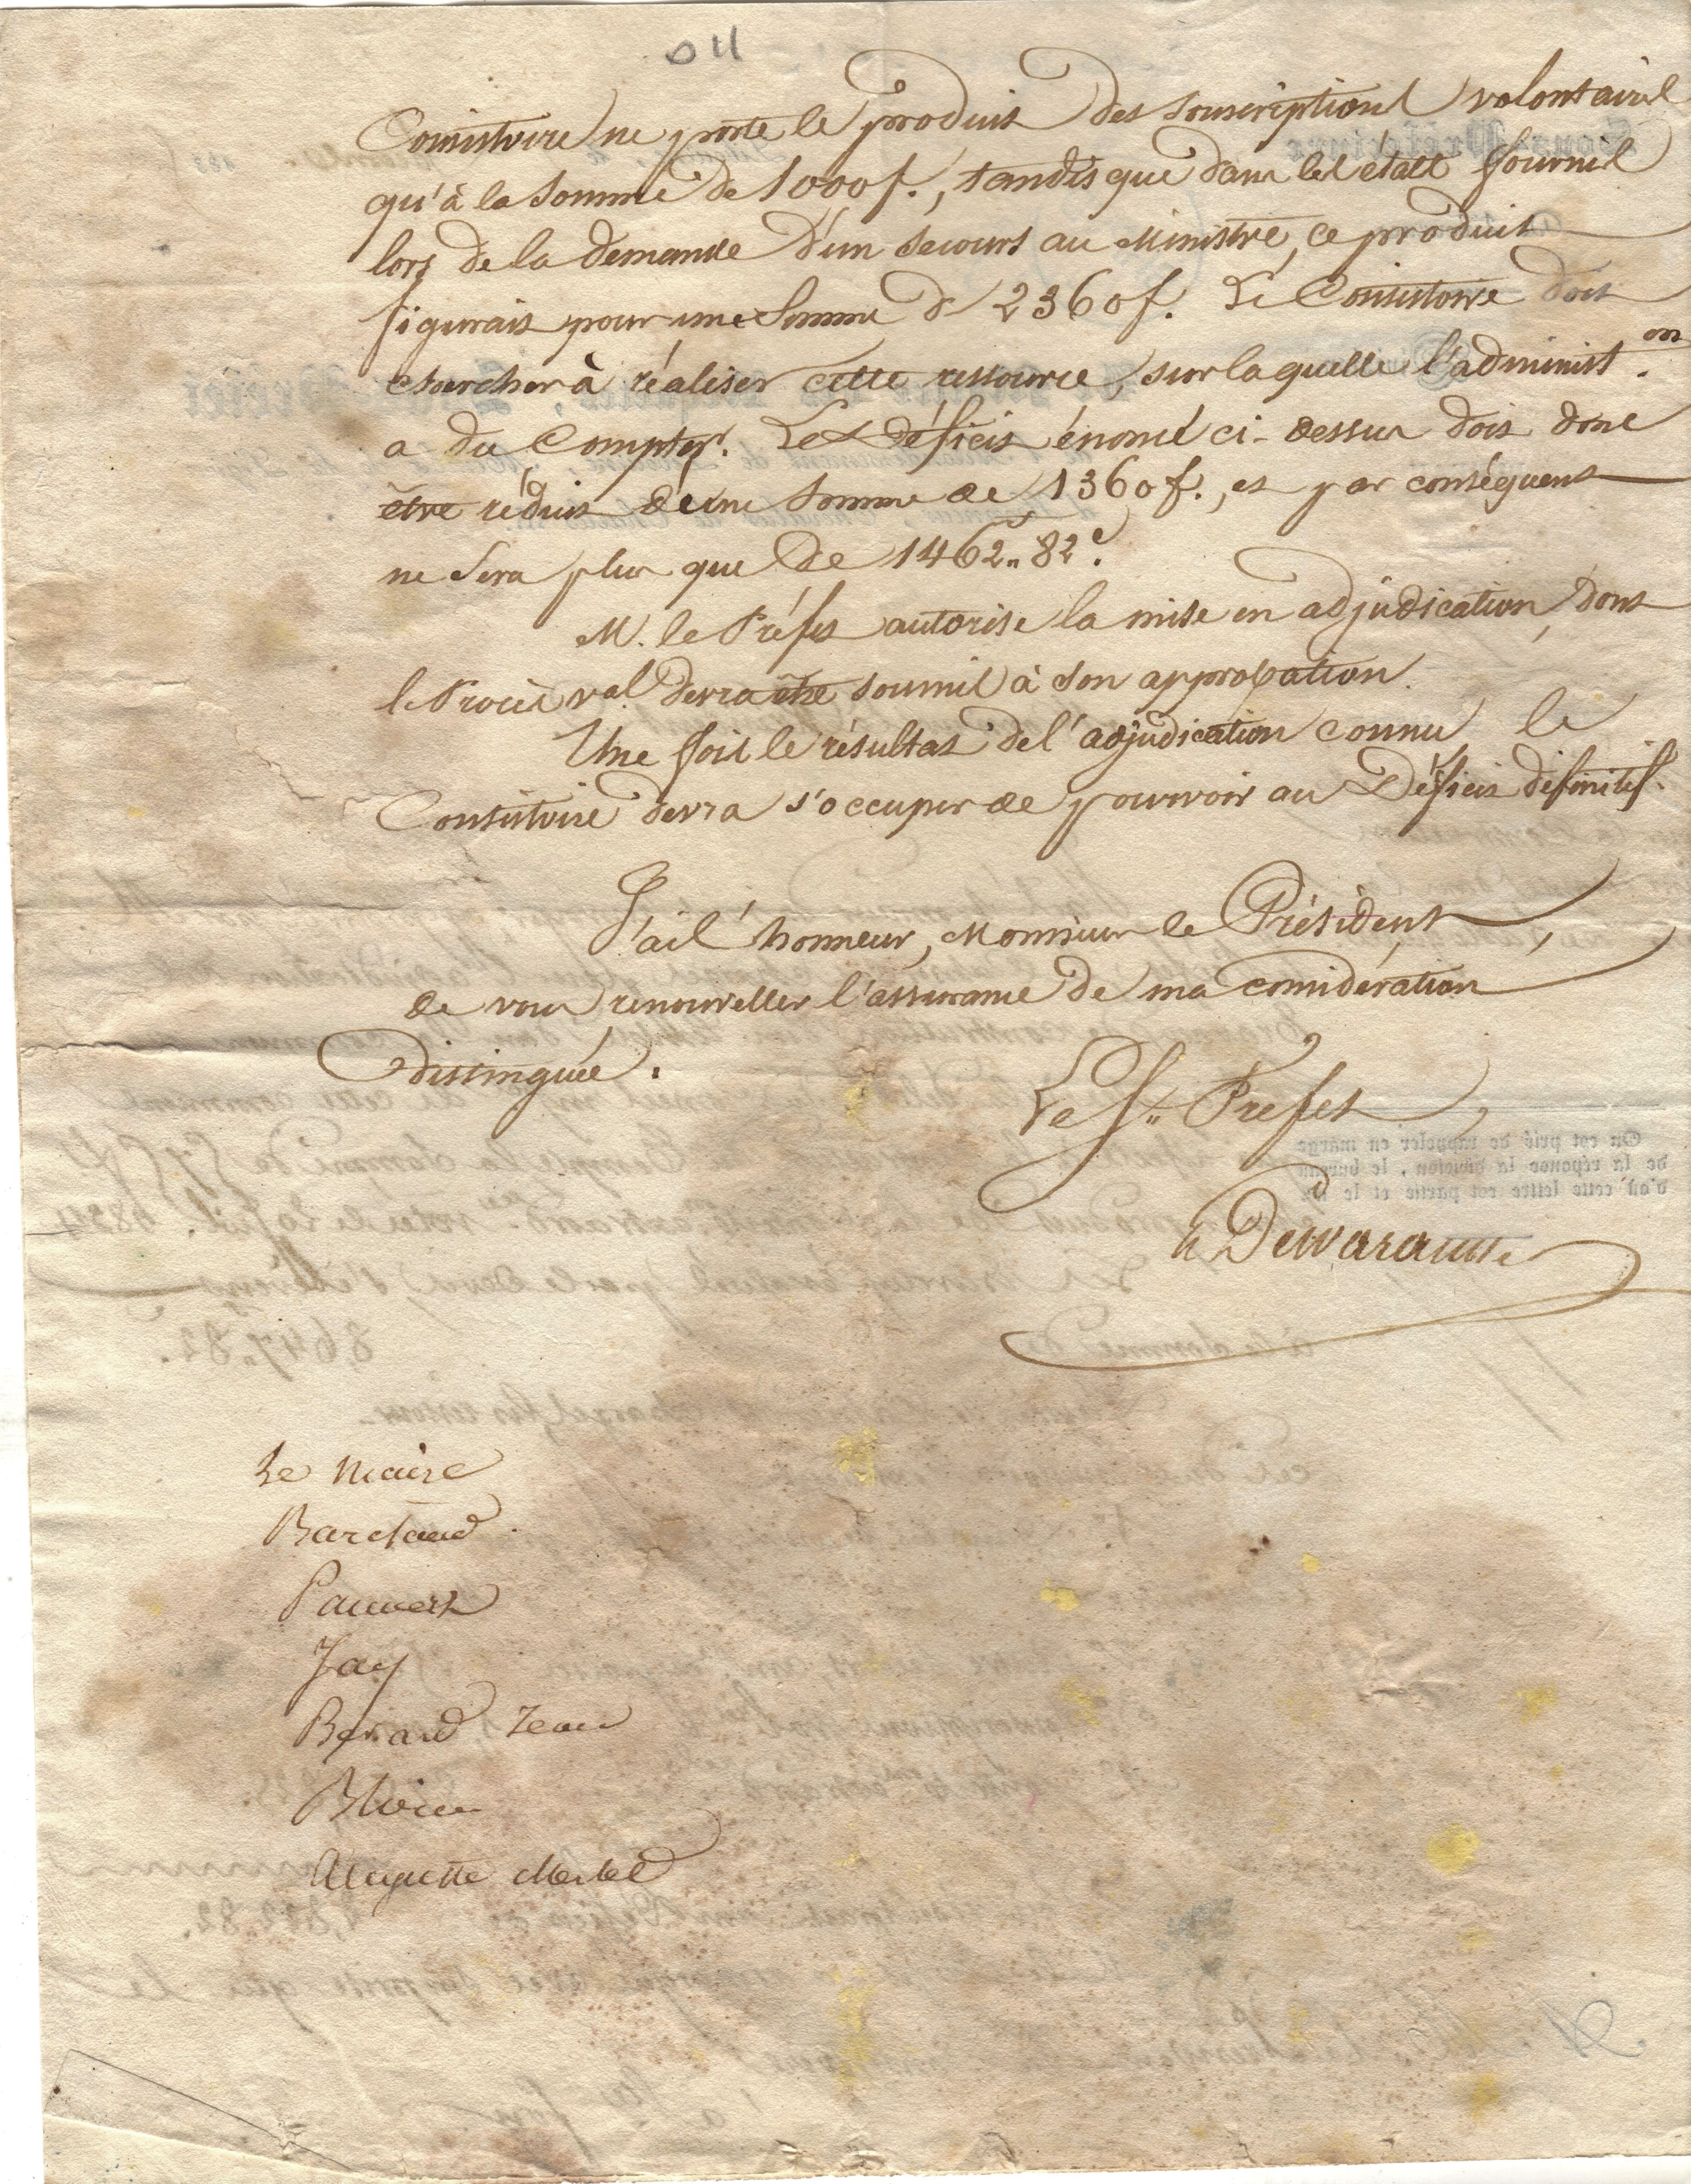 011
Consistoire ne porte le produit des souscriptions volontaires
qu'à la somme de 1000f., tandis que dans les états fournis
lors de la demande d'un secours au Ministre, ce produit
figurait pour une somme de 2360f. Le Consistoire doit
chercher à réaliser cette ressource, sur laquelle l'administ.on
a du compter. Le déficit énoncé ci-dessus doit donc
être réduit d'une somme de 1360f., et par conséquent
ne sera plus que de 1462.. 82c.
M. le Préfet autorise la mise en adjudication, dont
le Procès val. devra être soumis à son approbation.
Une fois le résultat de l'adjudication connu le
Consistoire devra s'occuper de pourvoir au Déficit définitif.
J'ai l'honneur, Monsieur le Président,
de vous renouveller l'assurance de ma considération
distinguée.
Le S.. Prefet,
Le Maire
Pauvert
Jay
Berard Jean